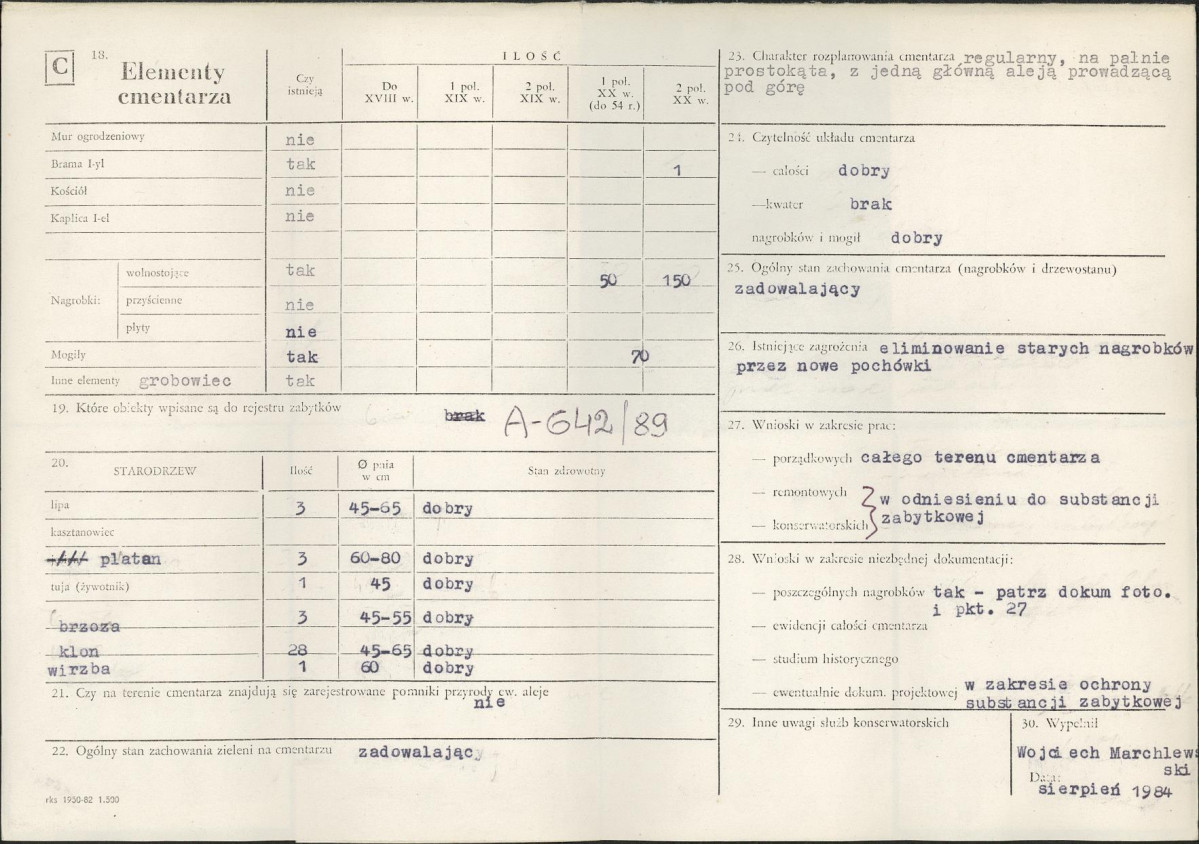 C
18. Elementy cmentarza
Czy istnieją
ILOŚĆ
Do XVIII w.
1 poł. XIX w.
2 poł. XIX w.
1 poł. XX w. (do 54 r.)
2 poł. XX w.
Mur ogrodzeniowy nie
Brama I-yl tak 1
Kościół nie
Kaplica I-el nie
Nagrobki:
wolnostojące tak 50 150
przyścienne nie
płyty nie
Mogiły tak 70
Inne elementy grobowiec tak
19. Które obiekty wpisane są do rejestru zabytków brak A-642/89
20. STARODRZEW Ilość Ø pnia w cm Stan zdrowotny
lipa 3 45-65 dobry
kasztanowiec
platan 3 60-80 dobry
tuja (żywotnik) 1 45 dobry
brzoza 3 45-55 dobry
klon 28 45-65 dobry
wirzba 1 60 dobry
21. Czy na terenie cmentarza znajdują się zarejestrowane pomniki przyrody ew. aleje
nie
22. Ogólny stan zachowania zieleni na cmentarzu zadowalający
rks 1930-82 1.500
23. Charakter rozplanowania cmentarza regularny, na pałnie
prostokąta, z jedną główną aleją prowadzącą
pod górę
24. Czytelność układu cmentarza
— całości dobry
—kwater brak
nagrobków i mogił dobry
25. Ogólny stan zachowania cmentarza (nagrobków i drzewostanu)
zadowalający
26. Istniejące zagrożenia eliminowanie starych nagrobków
przez nowe pochówki
27. Wnioski w zakresie prac:
— porządkowych całego terenu cmentarza
— remontowych
w odniesieniu do substancji
— konserwatorskich zabytkowej
28. Wnioski w zakresie niezbędnej dokumentacji:
— poszczególnych nagrobków tak - patrz dokum foto.
i pkt. 27
— ewidencji całości cmentarza
— studium historycznego
— ewentualnie dokum. projektowej w zakresie ochrony
substancji zabytkowej
29. Inne uwagi służb konserwatorskich
30. Wypełnił
Wojciech Marchlews
ski
Data:
sierpień 1984